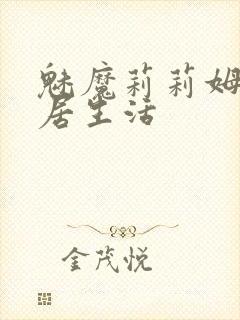 魅魔莉莉姆
居生活
金茂悦